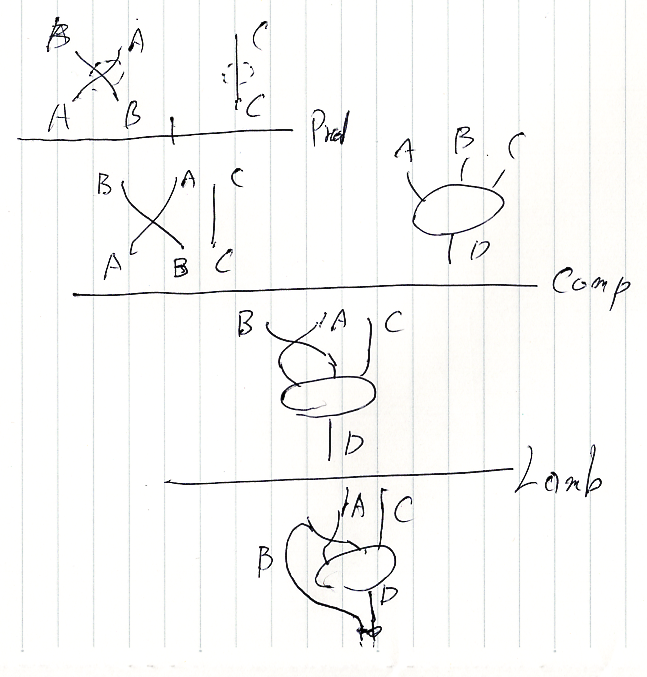 B A C
A B C
Prod
A B C
B A C
A B C
D
Comp
B A C
D
Lamb
A C
B
D